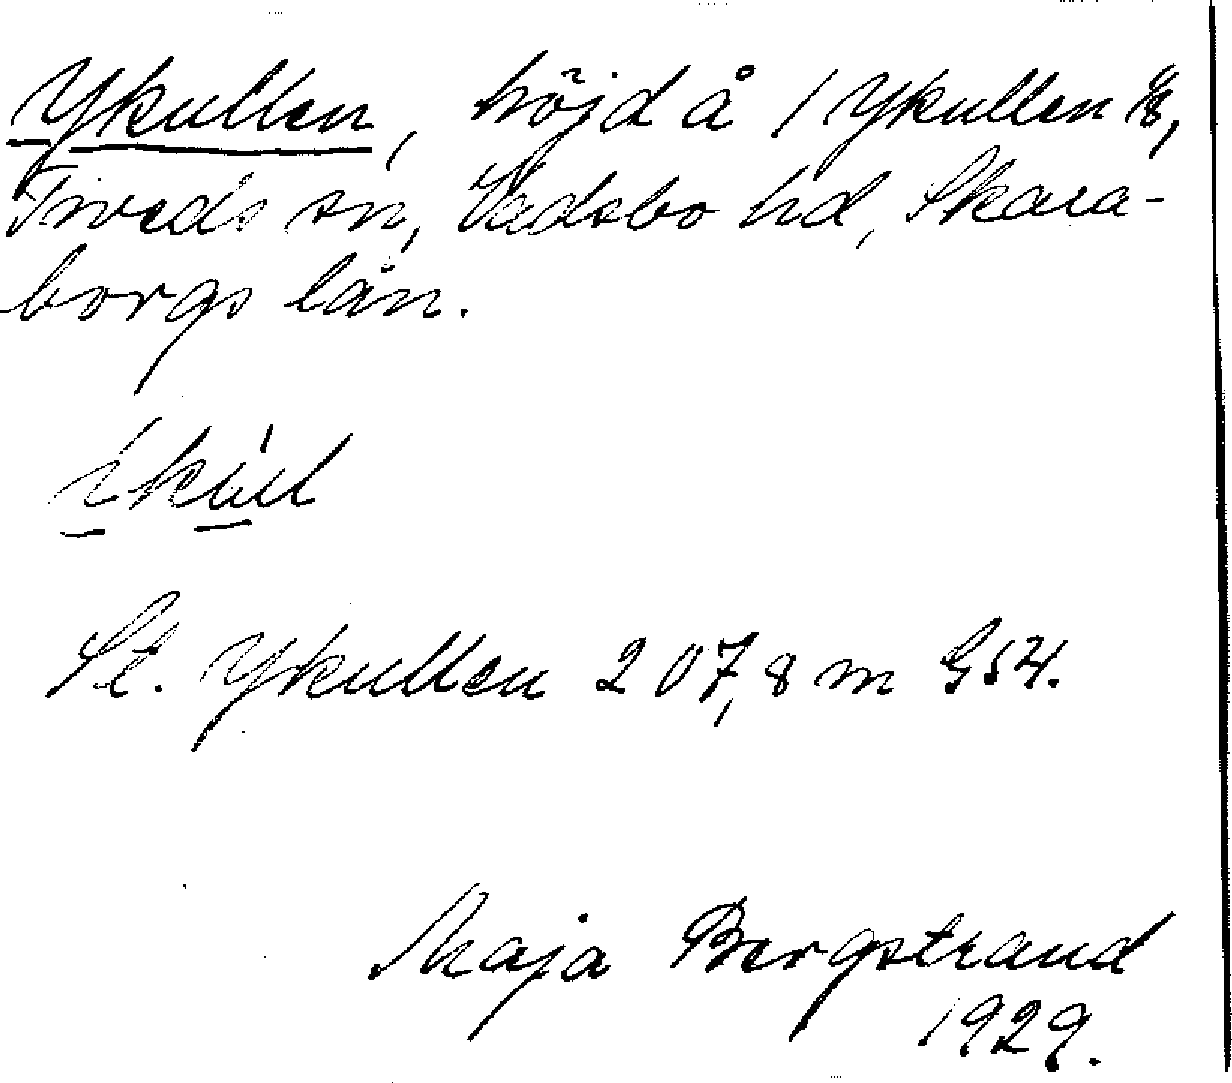 Ykullen, höjd å 1 Ykullen 1/8,
Tiveds sn, Vadsbo hd, Skara-
borgs län.
St. Ykullen 207,8 m GSH.
Maja Bergstrand
1929.